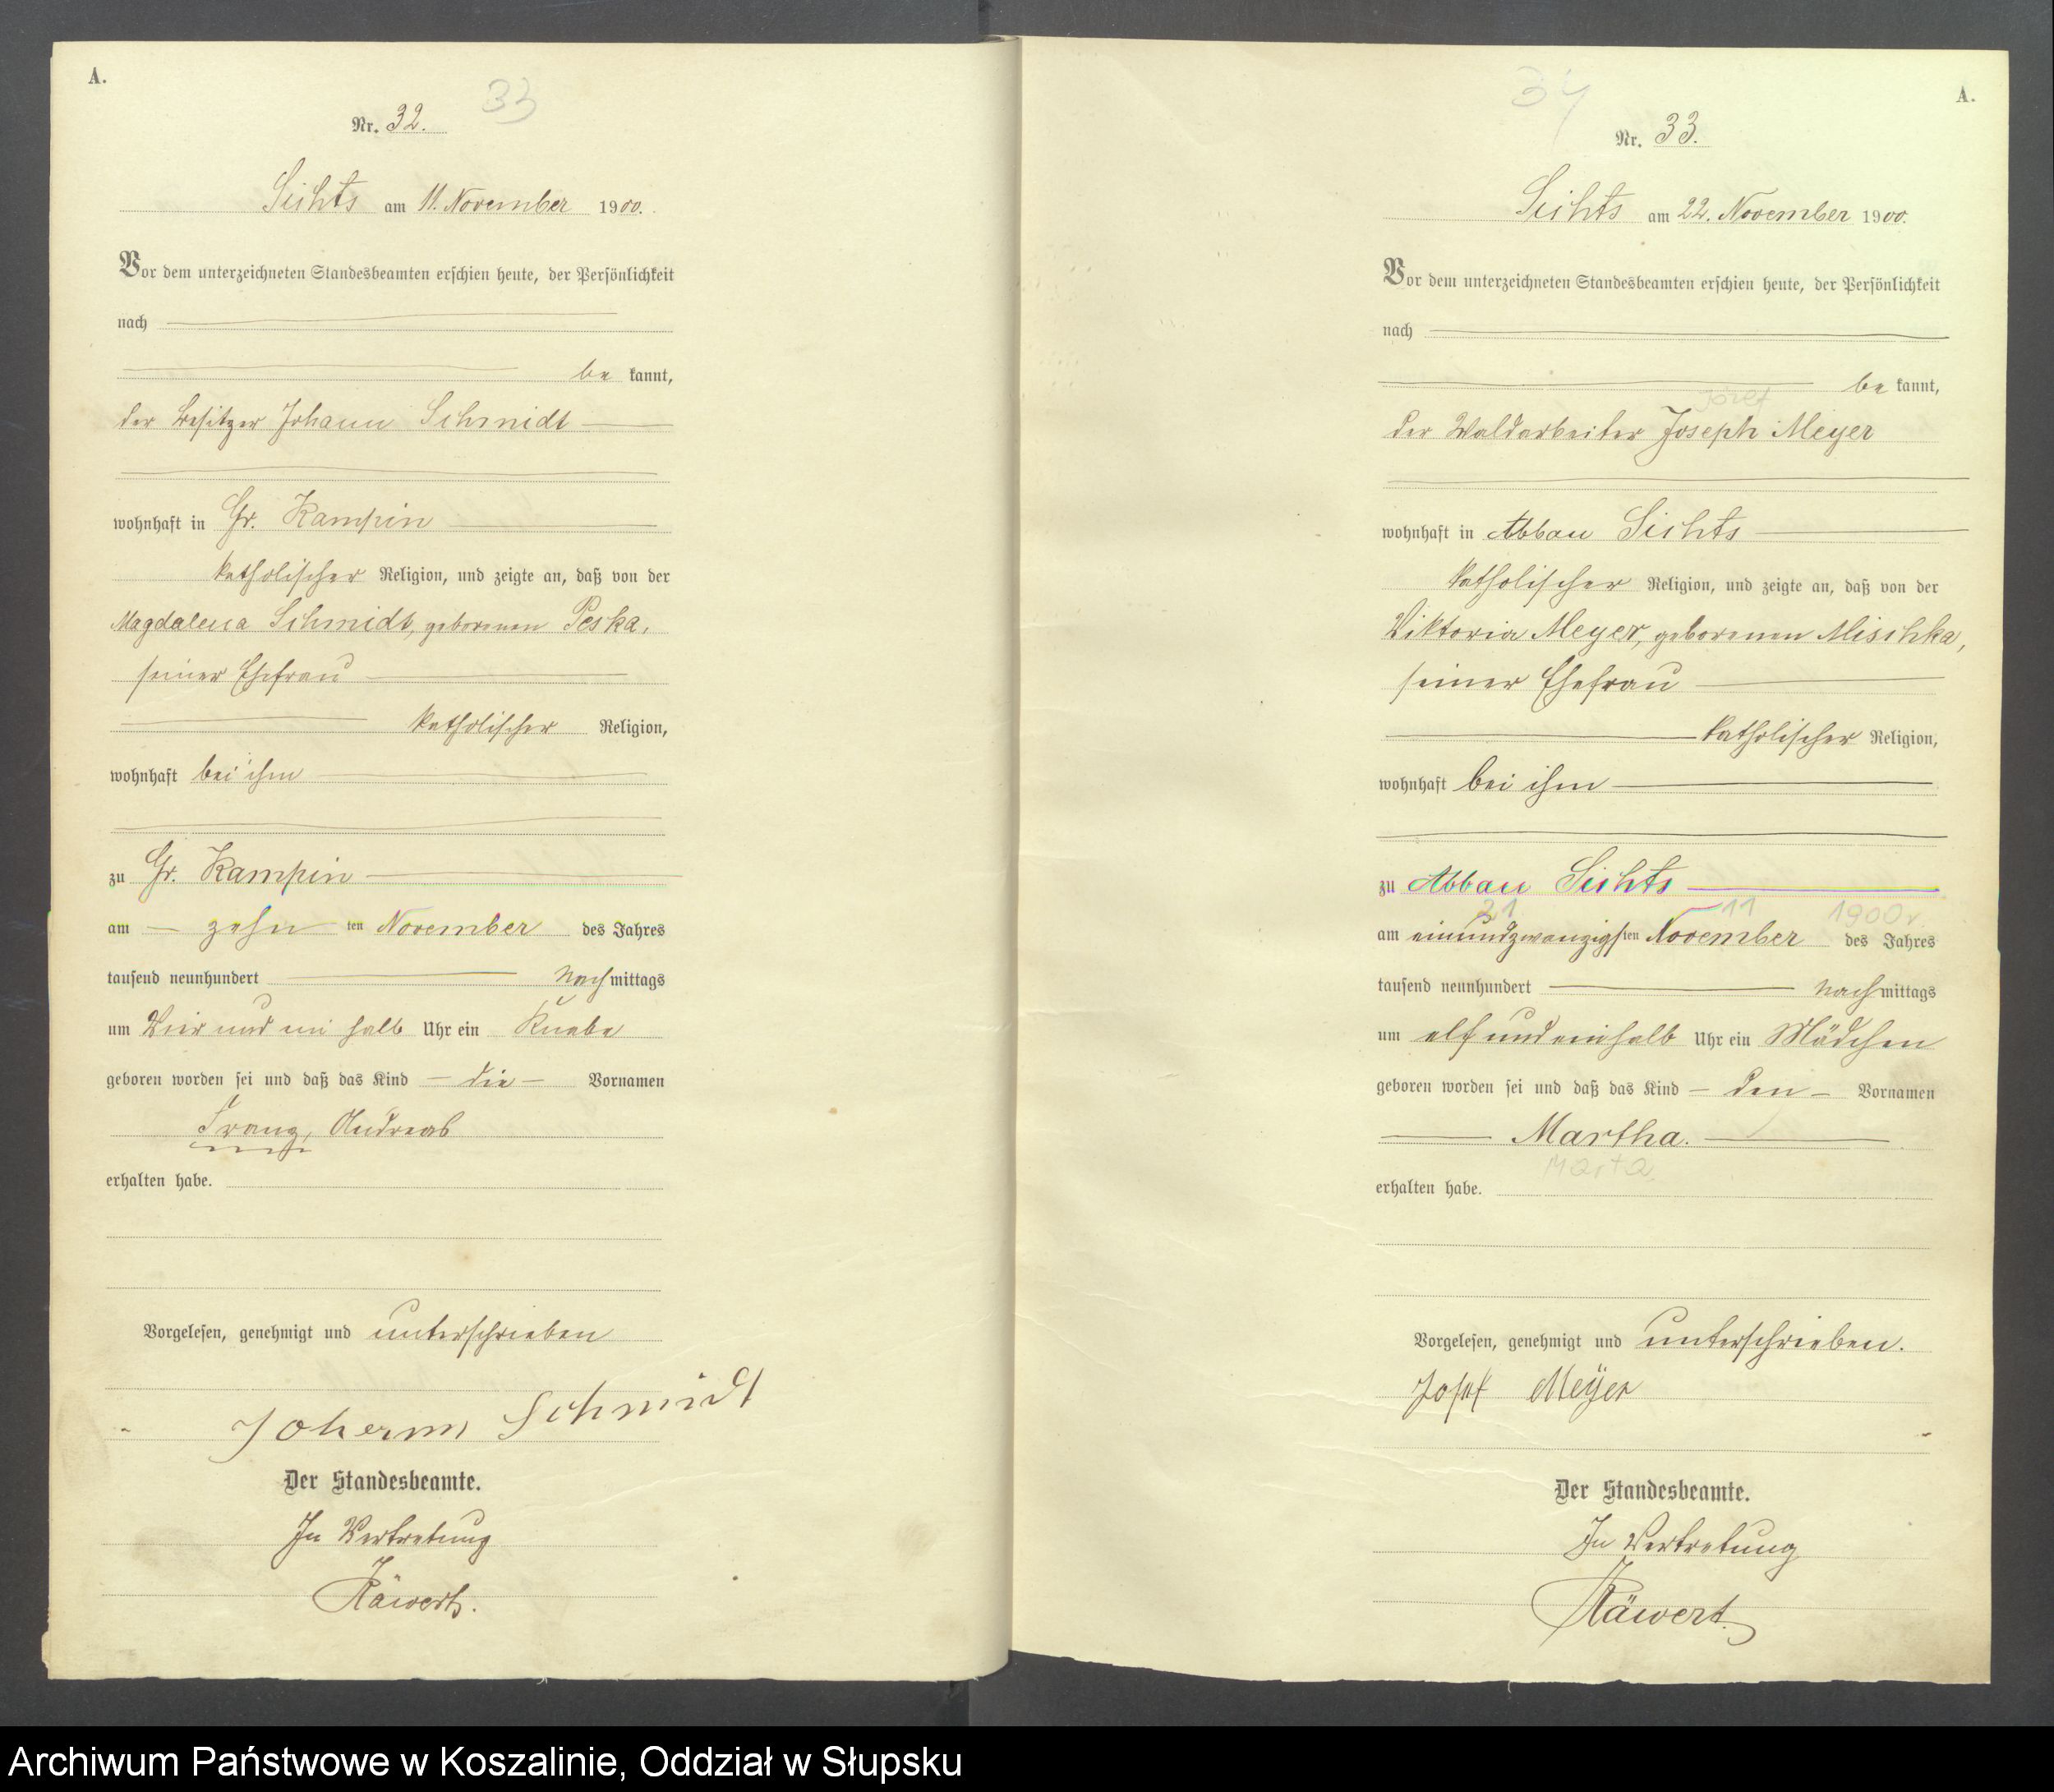 A.
33
Nr. 32.
Sichts am 11. November 1900.
Vor dem unterzeichneten Standesbeamten erschien heute, der Persönlichkeit
nach
be kannt,
der Besitzer Johann Schmidt
wohnhaft in Gr. Kampin
katholischer Religion, und zeigte an, daß von der
Magdalena Schmidt, geborenen Peska,
seiner Ehefrau
katholischer Religion,
wohnhaft bei ihm
zu Gr. Kampin
am zehn ten November des Jahres
tausend neunhundert nachmittags
um Vier und ein halb Uhr ein Knabe
geboren worden sei und daß das Kind – die – Vornamen
Franz, Andreas
erhalten habe.
Vorgelesen, genehmigt und unterschrieben
Johann Schmidt
Der Standesbeamte.
In Vertretung
Räwert.
A.
34
Nr. 33.
Sichts am 22. November 1900.
Vor dem unterzeichneten Standesbeamten erschien heute, der Persönlichkeit
nach
be kannt,
Józef
der Waldarbeiter Joseph Meyer
wohnhaft in Abbau Sichts
katholischer Religion, und zeigte an, daß von der
Viktoria Meyer, geborenen Mischka,
seiner Ehefrau
katholischer Religion,
wohnhaft bei ihm
zu Abbau Sichts
21 11 1900 r
am einundzwanzigsten November des Jahres
tausend neunhundert nachmittags
um elf und ein halb Uhr ein Mädchen
geboren worden sei und daß das Kind – den – Vornamen
Martha.
Marta
erhalten habe.
Vorgelesen, genehmigt und unterschrieben.
Josef Meÿer
Der Standesbeamte.
In Vertretung
Räwert.
Archiwum Państwowe w Koszalinie, Oddział w Słupsku